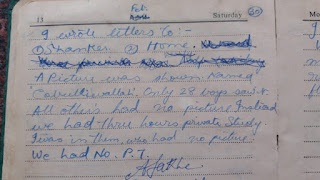 13 Feb. Saturday 20
I wrote letters to :-
① Shanker ② Home.
A Picture was shown. Named
Cabuliwallah. Only 28 boys saw it
All others had no picture. Instead
we had three hours private study
I was in them, who had no picture.
We had No. P.T.